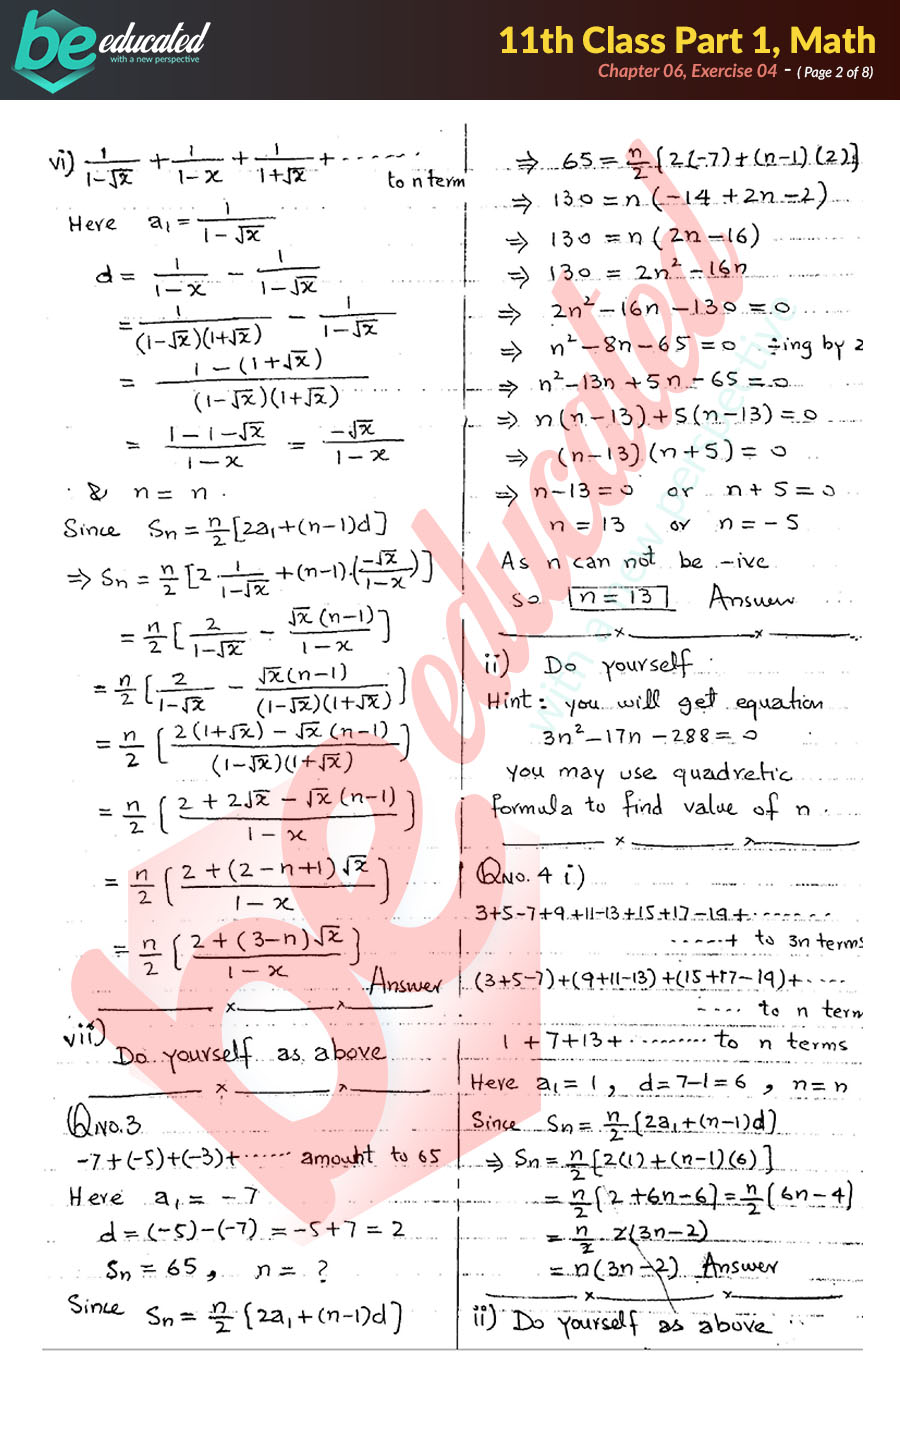 be educated
with a new perspective
11th Class Part 1, Math
Chapter 06, Exercise 04 - ( Page 2 of 8)
vi) 1/(1-√x) + 1/(1-x) + 1/(1+√x) + ·······
to n term
Here a₁ = 1/(1-√x)
d = 1/(1-x) - 1/(1-√x)
= 1/((1-√x)(1+√x)) - 1/(1-√x)
= (1-(1+√x))/((1-√x)(1+√x))
= (1-1-√x)/(1-x) = -√x/(1-x)
& n = n .
Since Sn = n/2 [2a₁+(n-1)d]
⇒ Sn = n/2 [2·1/(1-√x) + (n-1)·(-√x/(1-x))]
= n/2 [2/(1-√x) - √x(n-1)/(1-x)]
= n/2 [2/(1-√x) - √x(n-1)/((1-√x)(1+√x))]
= n/2 [(2(1+√x) - √x(n-1))/((1-√x)(1+√x))]
= n/2 [(2+2√x - √x(n-1))/(1-x)]
= n/2 [(2+(2-n+1)√x)/(1-x)]
= n/2 [(2+(3-n)√x)/(1-x)]
Answer
vii)
Do yourself as above
QNO.3
-7+(-5)+(-3)+······ amount to 65
Here a₁ = -7
d = (-5)-(-7) = -5+7 = 2
Sn = 65, n = ?
Since Sn = n/2 [2a₁+(n-1)d]
⇒ 65 = n/2 [2(-7)+(n-1)(2)]
⇒ 130 = n(-14+2n-2)
⇒ 130 = n(2n-16)
⇒ 130 = 2n²-16n
⇒ 2n²-16n-130 = 0
⇒ n²-8n-65 = 0 ÷ing by 2
⇒ n²-13n+5n-65 = 0
⇒ n(n-13)+5(n-13) = 0
⇒ (n-13)(n+5) = 0
⇒ n-13 = 0 or n+5 = 0
n = 13 or n = -5
As n can not be -ive
so n = 13 Answer
ii) Do yourself
Hint: you will get equation
3n²-17n-288 = 0
you may use quadretic
formula to find value of n.
QNO. 4 i)
3+5-7+9+11-13+15+17-19+·······
·····+ to 3n terms
(3+5-7)+(9+11-13)+(15+17-19)+····
···· to n term
1+7+13+········· to n terms
Here a₁ = 1, d = 7-1 = 6, n = n
Since Sn = n/2 [2a₁+(n-1)d]
⇒ Sn = n/2 [2(1)+(n-1)(6)]
= n/2 [2+6n-6] = n/2 [6n-4]
= n/2 · 2(3n-2)
= n(3n-2) Answer
ii) Do yourself as above
be educated
with a new perspective